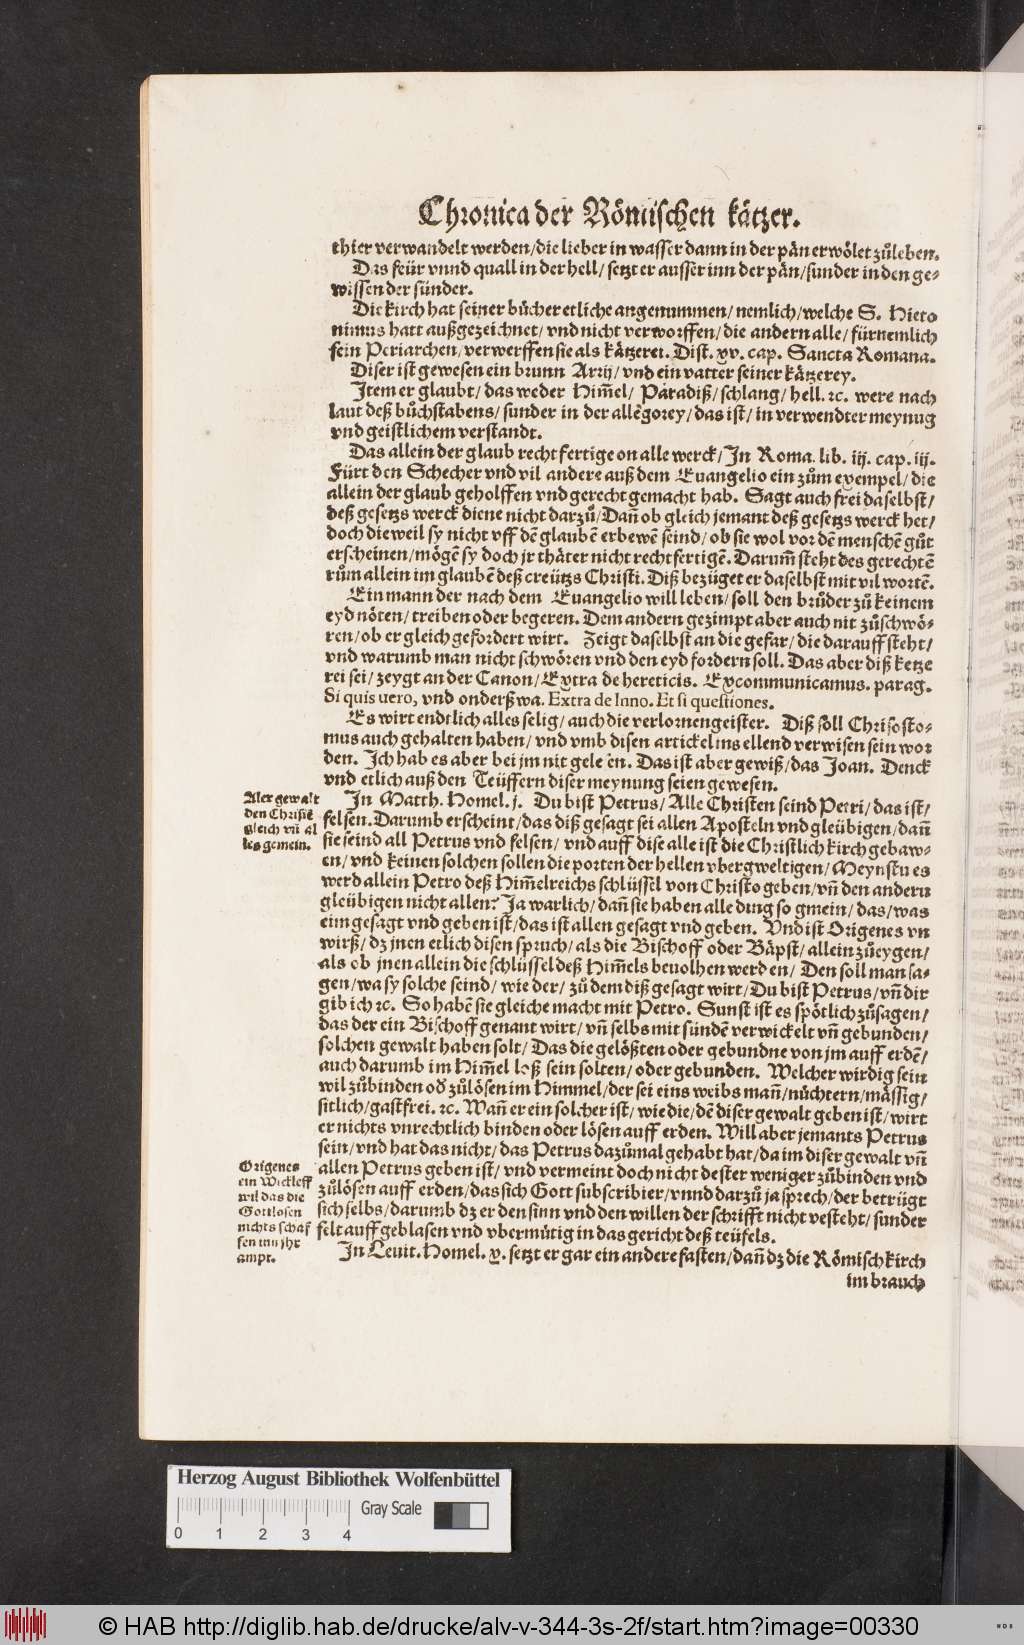 Chronica der Römischen kätzer.
thier verwandelt werden/ die lieber in wasser dann in der pän erwölet zůleben.
Das feür vnnd quall in der hell/ setzt er ausser inn der pän/ sunder in den ge-
wissen der sünder.
Die kirch hat seiner bücher etliche angenummen/ nemlich/ welche S. Hiero
nimus hatt außgezeichnet/ vnd nicht verworffen/ die andern alle/ fürnemlich
sein Periarchen/ verwerffen sie als kätzerei. Dist. xv. cap. Sancta Romana.
Diser ist gewesen ein brunn Arrij/ vnd ein vatter seiner kätzerey.
Item er glaubt/ das weder Him̃el/ Paradiß/ schlang/ hell. ꝛc. were nach
laut deß bůchstabens/ sunder in der allegorey/ das ist/ in verwendter meynug
vnd geistlichem verstandt.
Das allein der glaub rechtfertige on alle werck/ In Roma. lib. iij. cap. iij.
Fürt den Schecher vnd vil andere auß dem Euangelio ein zům exempel/ die
allein der glaub geholffen vnd gerecht gemacht hab. Sagt auch frei daselbst/
deß gesetzs werck diene nicht darzů/ Dañ ob gleich jemant deß gesetzs werck het/
doch dieweil sy nicht vff dẽ glaubẽ erbewẽ seind/ ob sie wol vor dẽ menschẽ gůt
erscheinen/ mögẽ sy doch jr thäter nicht rechtfertigẽ. Darum̃ steht des gerechtẽ
růmallein im glaubẽ deß creützs Christi. Diß bezüget er daselbst mit vil wortẽ.
Ein mann der nach dem Euangelio will leben/ soll den brůder zů keinem
eyd nöten/ treiben oder begeren. Dem andern gezimpt aber auch nit zůschwö-
ren/ ob er gleich gefordert wirt. Zeigt daselbst an die gefar/ die darauff steht/
vnd warumb man nicht schwören vnd den eyd fordern soll. Das aber diß ketze
rei sei/ zeygt an der Canon/ Extra de hereticis. Excommunicamus. parag.
Si quis uero, vnd onderßwa. Extra de Inno. Et si questiones.
Es wirt endtlich alles selig/ auch die verlornengeister. Diß soll Chrisosto-
mus auch gehalten haben/ vnd vmb disen artickel ins ellend verwisen sein wor
den. Ich hab es aber bei jm nit gelesen. Das ist aber gewiß/ das Joan. Denck
vnd etlich auß den Teüffern diser meynung seien gewesen.
Aler gewalt
den Christẽ
gleich vñ al
les gemein.
In Matth. Homel. j. Du bist Petrus/ Alle Christen seind Petri/ das ist/
felsen. Darumb erscheint/ das diß gesagt sei allen Aposteln vnd gleübigen/ dañ
sie seind all Petrus vnd felsen/ vnd auff dise alle ist die Christlich kirch gebaw-
en/ vnd keinen solchen sollen die porten der hellen vbergweltigen/ Meynstu es
werd allein Petro deß Him̃elreichs schlüssel von Christo geben/ vñ den andern
gleübigen nicht allen? Ja warlich/ dañ sie haben alle ding so gmein/ das/ was
eim gesagt vnd geben ist/ das ist allen gesagt vnd geben. Vnd ist Origenes vn
wirß/ dz jnen etlich disen spruch/ als die Bischoff oder Bäpst/ allein zůeygen/
als ob jnen allein die schlüssel deß Him̃els beuolhen werden/ Den soll man sa-
gen/ wa sy solche seind/ wie der/ zů dem diß gesagt wirt/ Du bist Petrus/ vñ dir
gib ich ꝛc. So habẽ sie gleiche macht mit Petro. Sunst ist es spötlich zůsagen/
das der ein Bischoff genant wirt/ vñ selbs mit sündẽ verwickelt vñ gebunden/
solchen gewalt haben solt/ Das die gelößten oder gebundne von jm auff erdẽ/
auch darumb im Him̃el loß sein solten/ oder gebunden. Welcher wirdig sein
wil zůbinden oď zůlösen im Himmel/ der sei eins weibs mañ/ nüchtern/ mässig/
sitlich/ gastfrei. ꝛc. Wañ er ein solcher ist/ wie die/ dẽ diser gewalt geben ist/ wirt
er nichts vnrechtlich binden oder lösen auff erden. Will aber jemants Petrus
sein/ vnd hat das nicht/ das Petrus dazůmal gehabt hat/ da im diser gewalt vñ
Origenes
ein Wickleff
wil das die
Gottlosen
nichts schaf
fen inn jhr
ampt.
allen Petrus geben ist/ vnd vermeint doch nicht dester weniger zůbinden vnd
zůlösen auff erden/ das sich Gott subscribier/ vnnd darzů ja sprech/ der betrügt
sich selbs/ darumb dz er den sinn vnd den willen der schrifft nicht vesteht/ sunder
felt auffgeblasen vnd vbermütig in das gericht deß teüfels.
In Leuit. Homel. x. setzt er gar ein andere fasten/ dañ dz die Römisch kirch
im brauch
Herzog August Bibliothek Wolfenbüttel
Gray Scale
0 1 2 3 4
© HAB http://diglib.hab.de/drucke/alv-v-344-3s-2f/start.htm?image=00330